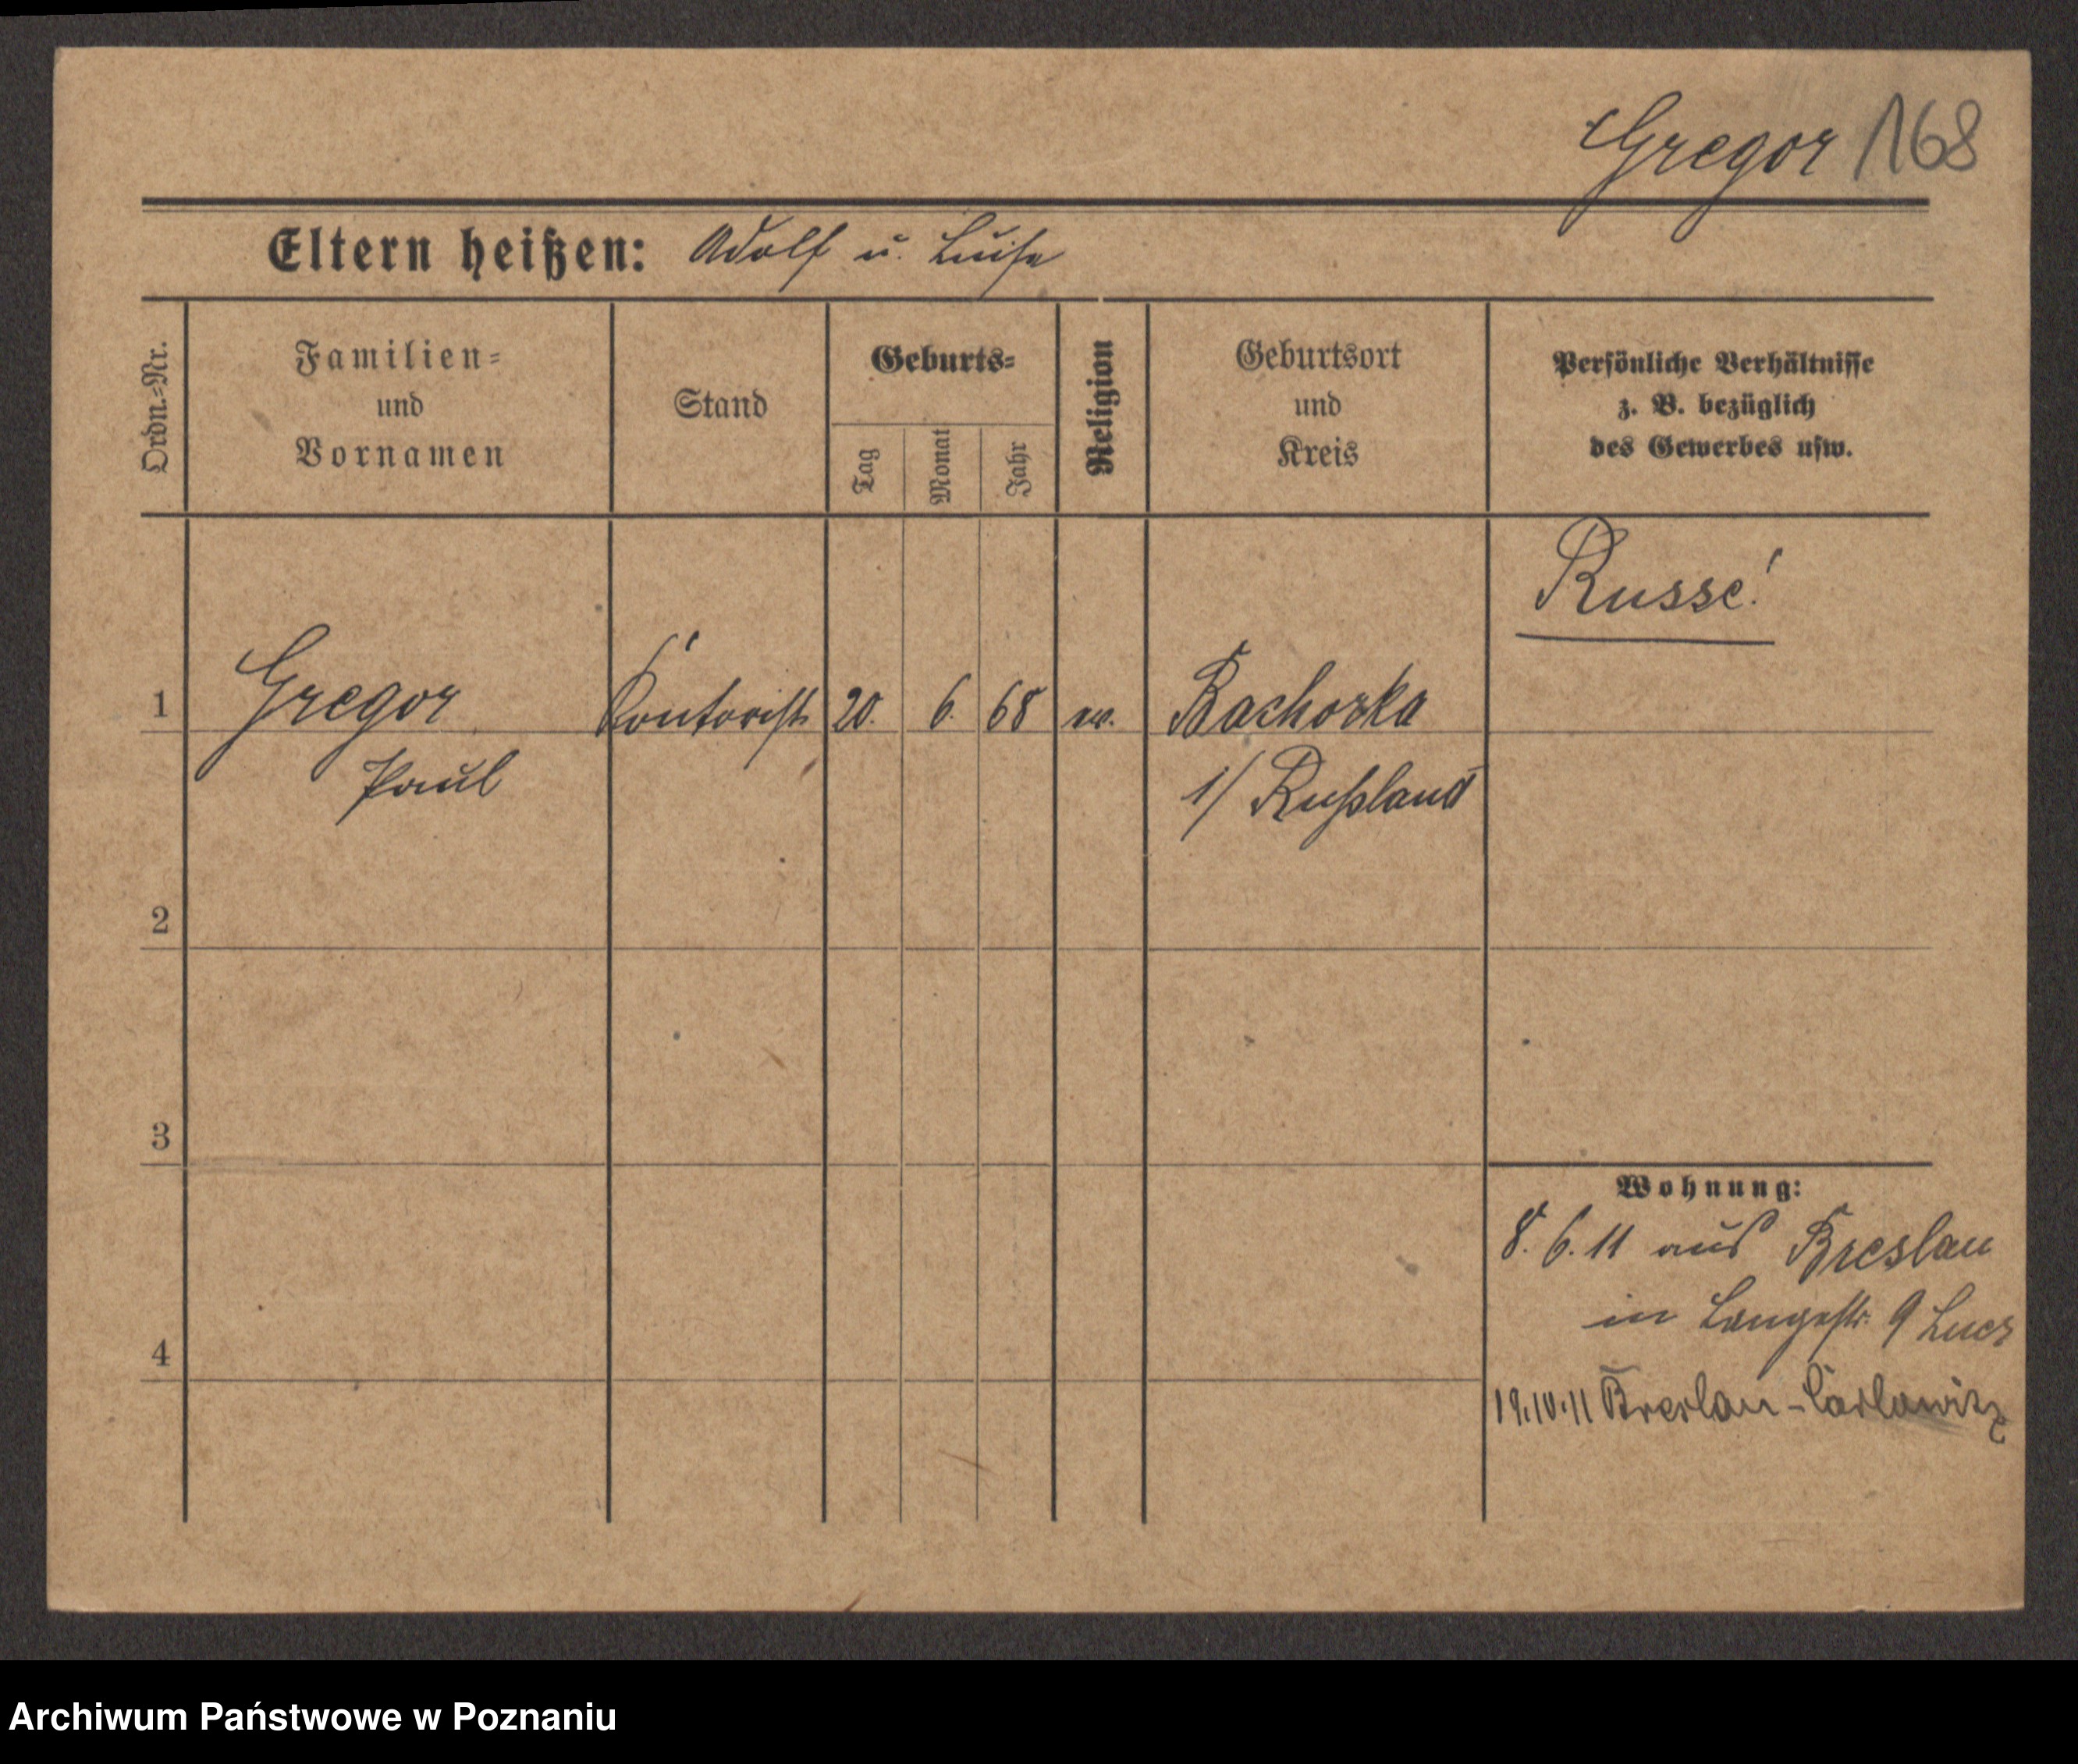 Gregor 168
Eltern heißen: Adolf u. Luise
Ordn.=Nr.
Familien=
und
Vornamen
Stand
Geburts=
Tag
Monat
Jahr
Religion
Geburtsort
und
Kreis
Persönliche Verhältnisse
z. B. bezüglich
des Gewerbes usw.
Russe!
1 Gregor Kontorist 20. 6. 68 ev. Bachorka
Paul i/ Rußland
2
3
Wohnung:
8. 6. 11 aus Breslau
in Langestr. 9
4
19.10.11 Breslau-Carlowitz
Archiwum Państwowe w Poznaniu